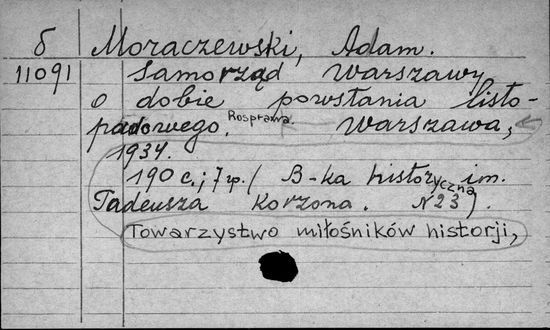 б Moraczewski, Adam.
11091 Samorząd Warszawy
o dobie powstania listo-
padowego. Rosprawa. Warszawa,
1934.
190 с.; 7 гр. ( B-ka historyczna im.
Tadeusza Korzona. N 23).
Towarzystwo miłośników historji,